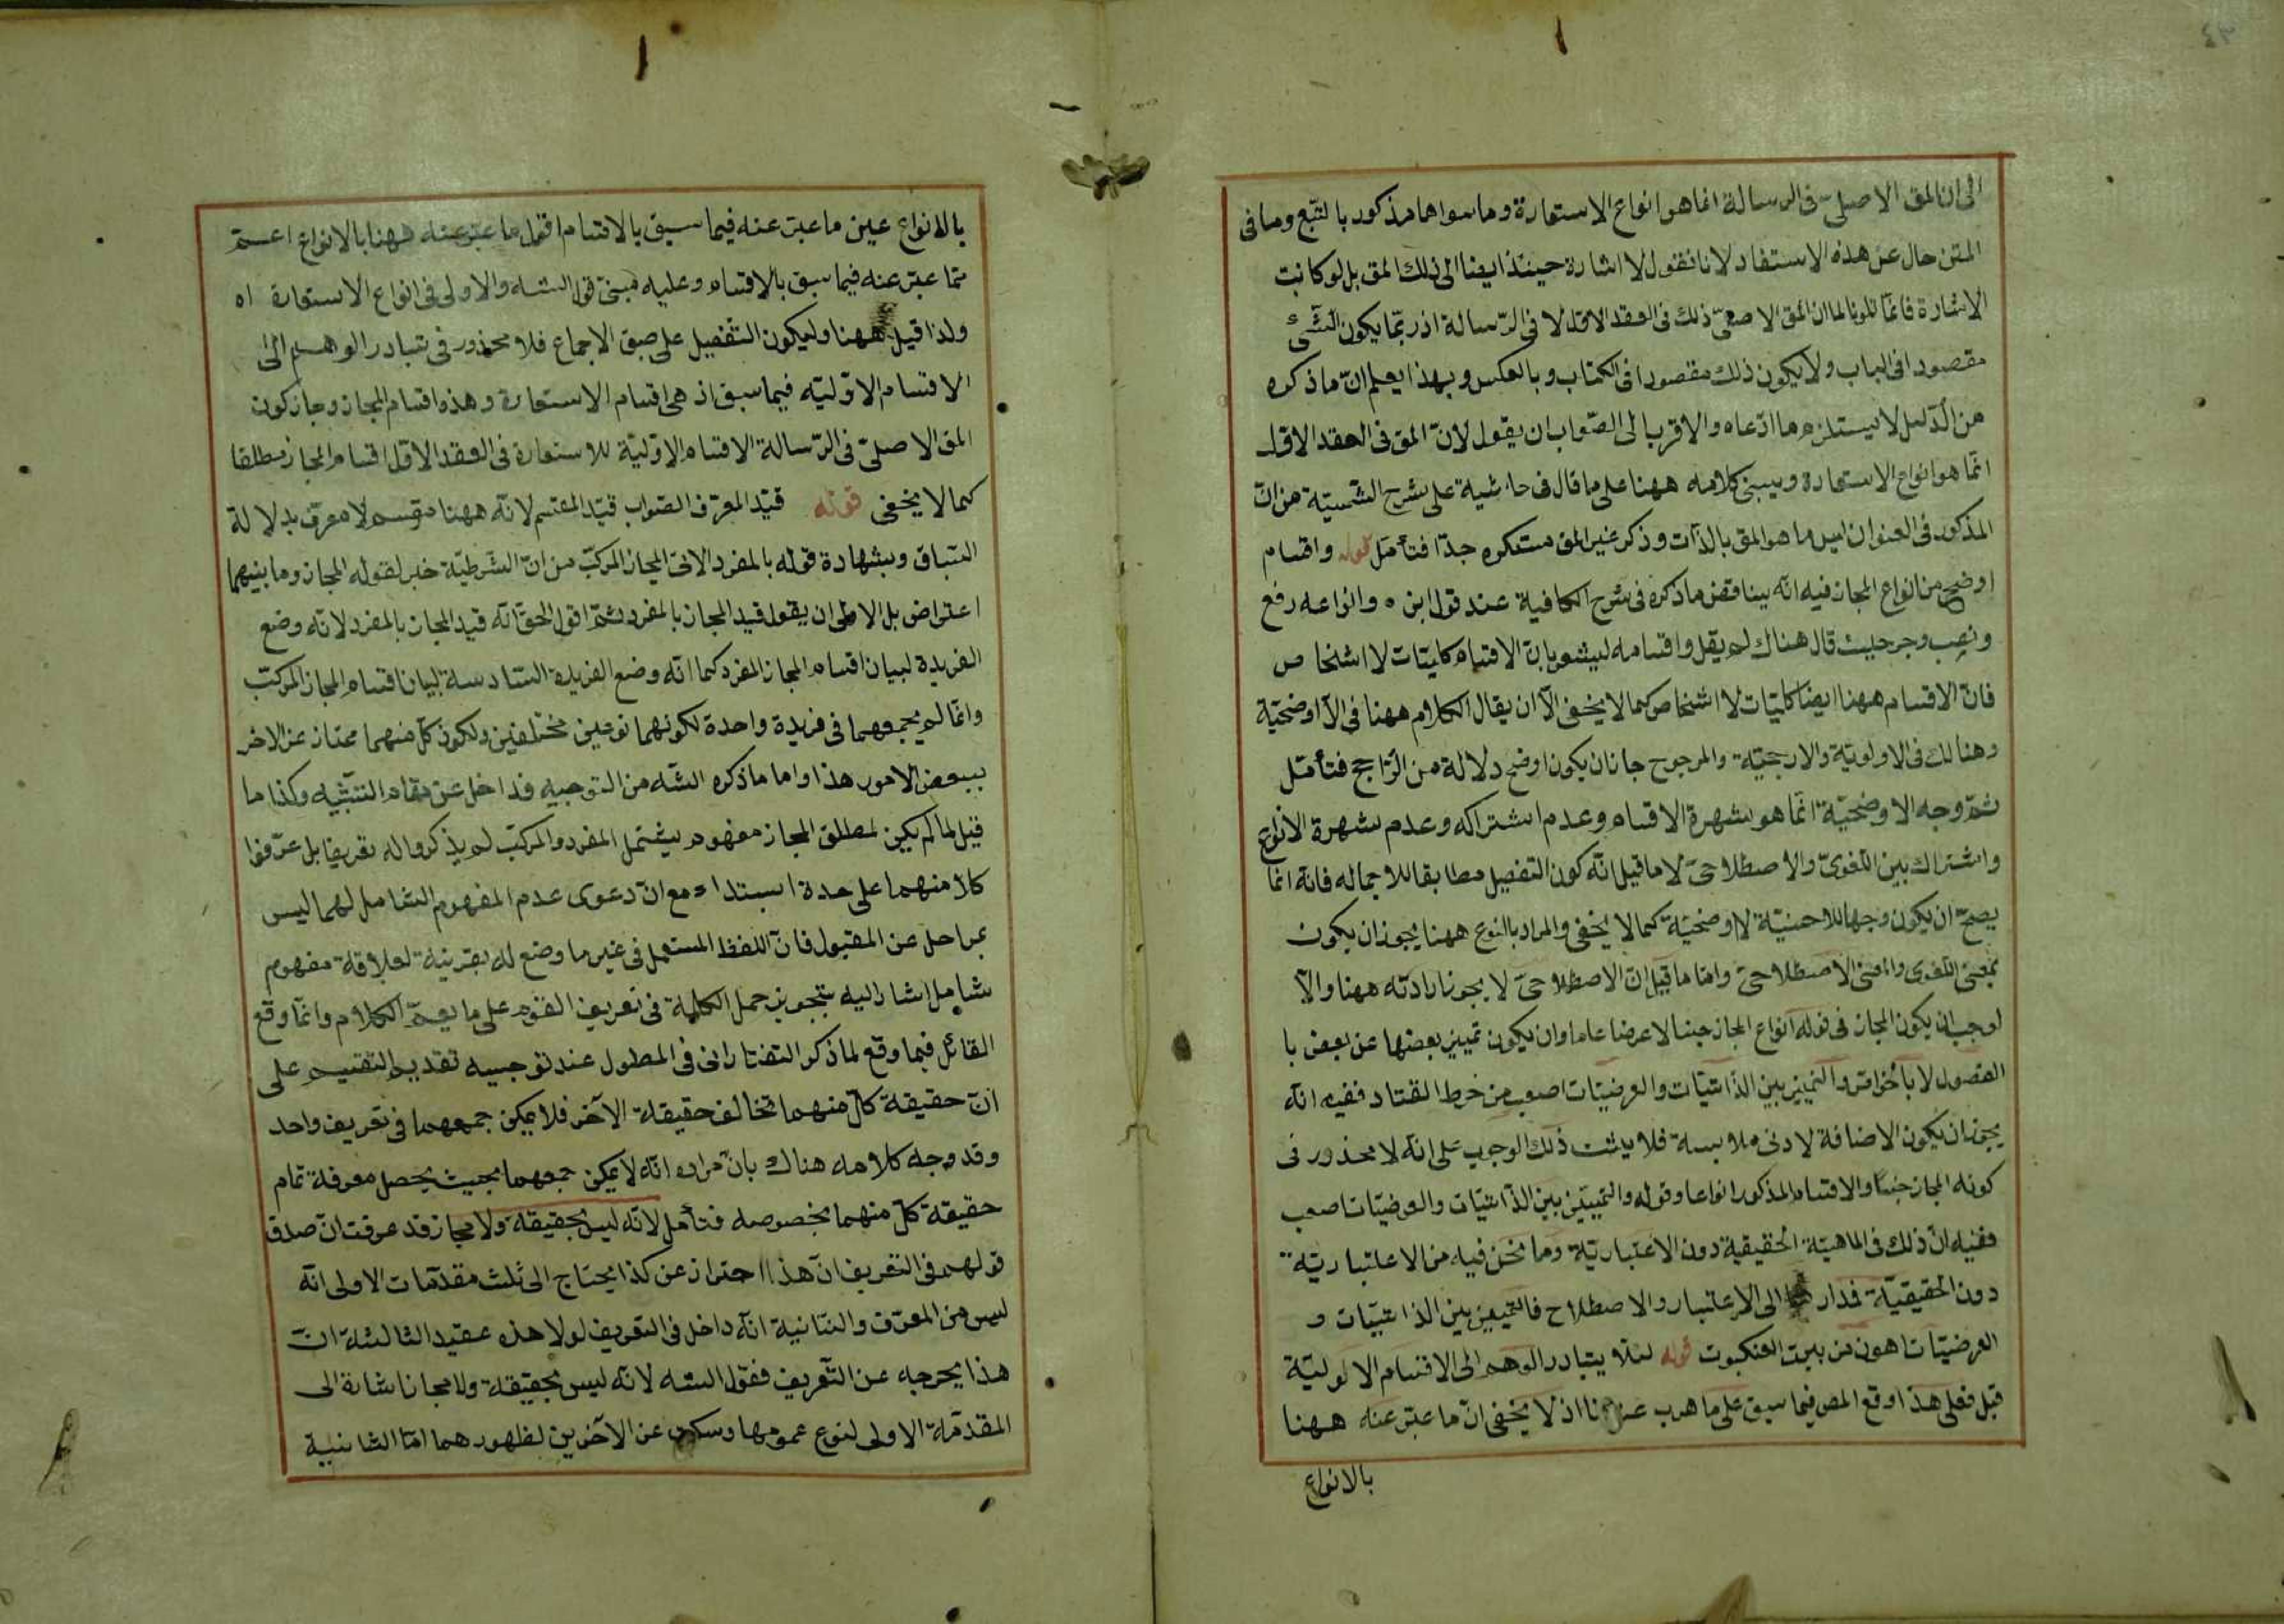 ٤٣
الى ان المق الاصلىّ فى الرسالة انما هو انواع الاستعارة وما سواها مذكور بالتبع وما فى
المتن حال عن هذه الاستفاد لانا نقول لا اشارة حينئذ ايضا الى ذلك المق بل لو كانت
الاشارة فانما تلونا لما ان المق الاصلىّ ذلك فى العقد الاول لا فى الرسالة اذ ربما يكون الشئ
مقصودا فى الباب ولا يكون ذلك مقصودا فى الكتاب وبالعكس وبهذا يعلم انّ ما ذكره
من الدليل لا يستلزم ما ادّعاه والاقرب الى الصّواب ان يقول لانّ المق فى العقد الاول
انّما هو انواع الاستعارة ويبنى كلامه ههنا على ما قال فى حاشية على شرح الشمسيّة من انّ
المذكور فى العنوان ليس ما هو المق بالذات وذكر غير المق مستكره جدّا فتأمّل قوله واقسام
اوضح من انواع المجاز فيه انّه يناقض ما ذكره فى شرح الكافية عند قول ابن ه وانواعه رفع
ونصب وجر حيث قال هناك لم يقل واقسامه ليشعر بانّ الاقسام كليّات لا اشخاص
فانّ الاقسام ههنا ايضا كليّات لا اشخاص كما لا يخفى الّا ان يقال الكلام ههنا فى الاوضحيّة
وهنالك فى الاولويّة والارجحيّة والمرجوح جاز ان يكون اوضح دلالة من الرّاجح فتأمّل
ثمّ وجه الاوضحيّة انّما هو شهرة الاقسام وعدم اشتراكه وعدم شهرة الانواع
واشتراك بين اللّغوىّ والاصطلاحىّ لا ما قيل انّه كون التفصيل مطابقا للاجمال فانّه انّما
يصحّ ان يكون وجها للاحسنيّة لا اوضحيّة كما لا يخفى والمراد بالنوع ههنا يجوز ان يكون
بمعنى اللغوى والمعنى الاصطلاحىّ وامّا ما قيل انّ الاصطلاحىّ لا يجوز ارادته ههنا والّا
لوجب ان يكون المجاز فى قوله انواع المجاز جنسا لا عرضا عاما وان يكون تميّيز بعضها عن بعض با
الفصول لا بالخواص والتمييز بين الذاتيّات والعرضيّات اصعب من خرط القتاد ففيه انّه
يجوز ان يكون الاضافة لادنى ملابسة فلا يثبت ذلك الوجوب على انّه لا محذور فى
كونه المجاز جنسا والاقسام المذكور انواعا وقوله والتمييز بين الذاتيّات والعرضيّات اصعب
ففيه انّ ذلك فى الماهيّة الحقيقية دون الاعتباريّة وما نحن فيه من الاعتباريّة
دون الحقيقيّة فدار الى الاعتبار والاصطلاح فالتمييز بين الذاتيّات و
العرضيّات اهون من بيت العنكبوت قوله لئلا يتبادر الوهم الى الاقسام الاوليّة
قيل فعلى هذا وقع المص فيما سبق على ما هرب عن اذ لا يخفى انّ ما عبّر عنه ههنا
بالانواع
بالانواع عين ما عبّر عنه فيما سبق بالاقسام اقول ما عبّر عنه ههنا بالانواع اعمّ
ممّا عبّر عنه فيما سبق بالاقسام وعليه مبنىّ قول الشه والاولى فى انواع الاستعارة اه
ولذا قيل ههنا وليكون التّفصيل على صبق الاجماع فلا محذور فى تبادر الوهم الى
الاقسام الاوّليّه فيما سبق اذ هى اقسام الاستعارة وهذه اقسام المجاز وجاز كون
المق الاصلىّ فى الرّسالة الاقسام الاوّليّة للاستعارة فى العقد الاوّل اقسام المجاز مطلقا
كما لا يخفى قوله قيّد المعرّف الصّواب قيّد المقسم لانّه ههنا مقسم لا معرّف بدلالة
السّباق وبشهادة قوله بالمفرد الاتى المجاز المركّب من انّ الشّرطيّة خبر لقوله المجاز وما بينهما
اعتراض بل الاولى ان يقول قيد المجاز بالمفرد ثمّ اقول الحقّ انّه قيد المجاز بالمفرد لانّه وضع
الفريدة لبيان اقسام المجاز المفرد كما انّه وضع الفريدة السّادسة لبيان اقسام المجاز المركّب
وانّما لم يجمعهما فى فريدة واحدة لكونهما نوعين مختلفين ولكون كلّ منهما ممتاز عن الاخر
ببعض الامور هذا واما ما ذكره الشّه من التوجيه فداخل عن مقام التنبّيه وكذا ما
قيل لما لم يكن لمطلق المجاز مفهوم يشتمل المفرد والمركّب لم يذكروا له تعريفا بل عرّفوا
كلا منهما على حدة ابتداء مع انّ دعوى عدم المفهوم الشامل لهما ليس
بمراحل عن المقبول فانّ اللفظ المستعمل فى غير ما وضع له بقرينة لعلاقة مفهوم
شامل اشار اليه بتجويز حمل الكلمة فى تعريف القوم على ما يعمّ الكلام وانّما وقع
القائل فيما وقع لما ذكر التفتازانى فى المطول عند توجيه تقديم التقسيم على
انّ حقيقة كلّ منهما تخالف حقيقة الآخر فلا يمكن جمعهما فى تعريف واحد
وقد وجه كلامه هناك بانّ مراده انّه لا يمكن جمعهما بحيث يحصل معرفة تمام
حقيقة كلّ منهما بخصوصه فتأمل لانّه ليس بحقيقة ولا مجاز قد عرفت انّ صدق
قولهم فى التعريف انّ هذا احتراز عن كذا يحتاج الى ثلث مقدّمات الاولى انّه
ليس من المعرّف والثّانية انّه داخل فى التعريف لولا هذه عقيد الثالثة انّ
هذا يخرجه عن التّعريف فقول الشه لانّه ليس بحقيقة ولا مجاز اشارة الى
المقدّمة الاولى لنوع عمومها وسكت عن الآخرين لظهورهما امّا الثانية